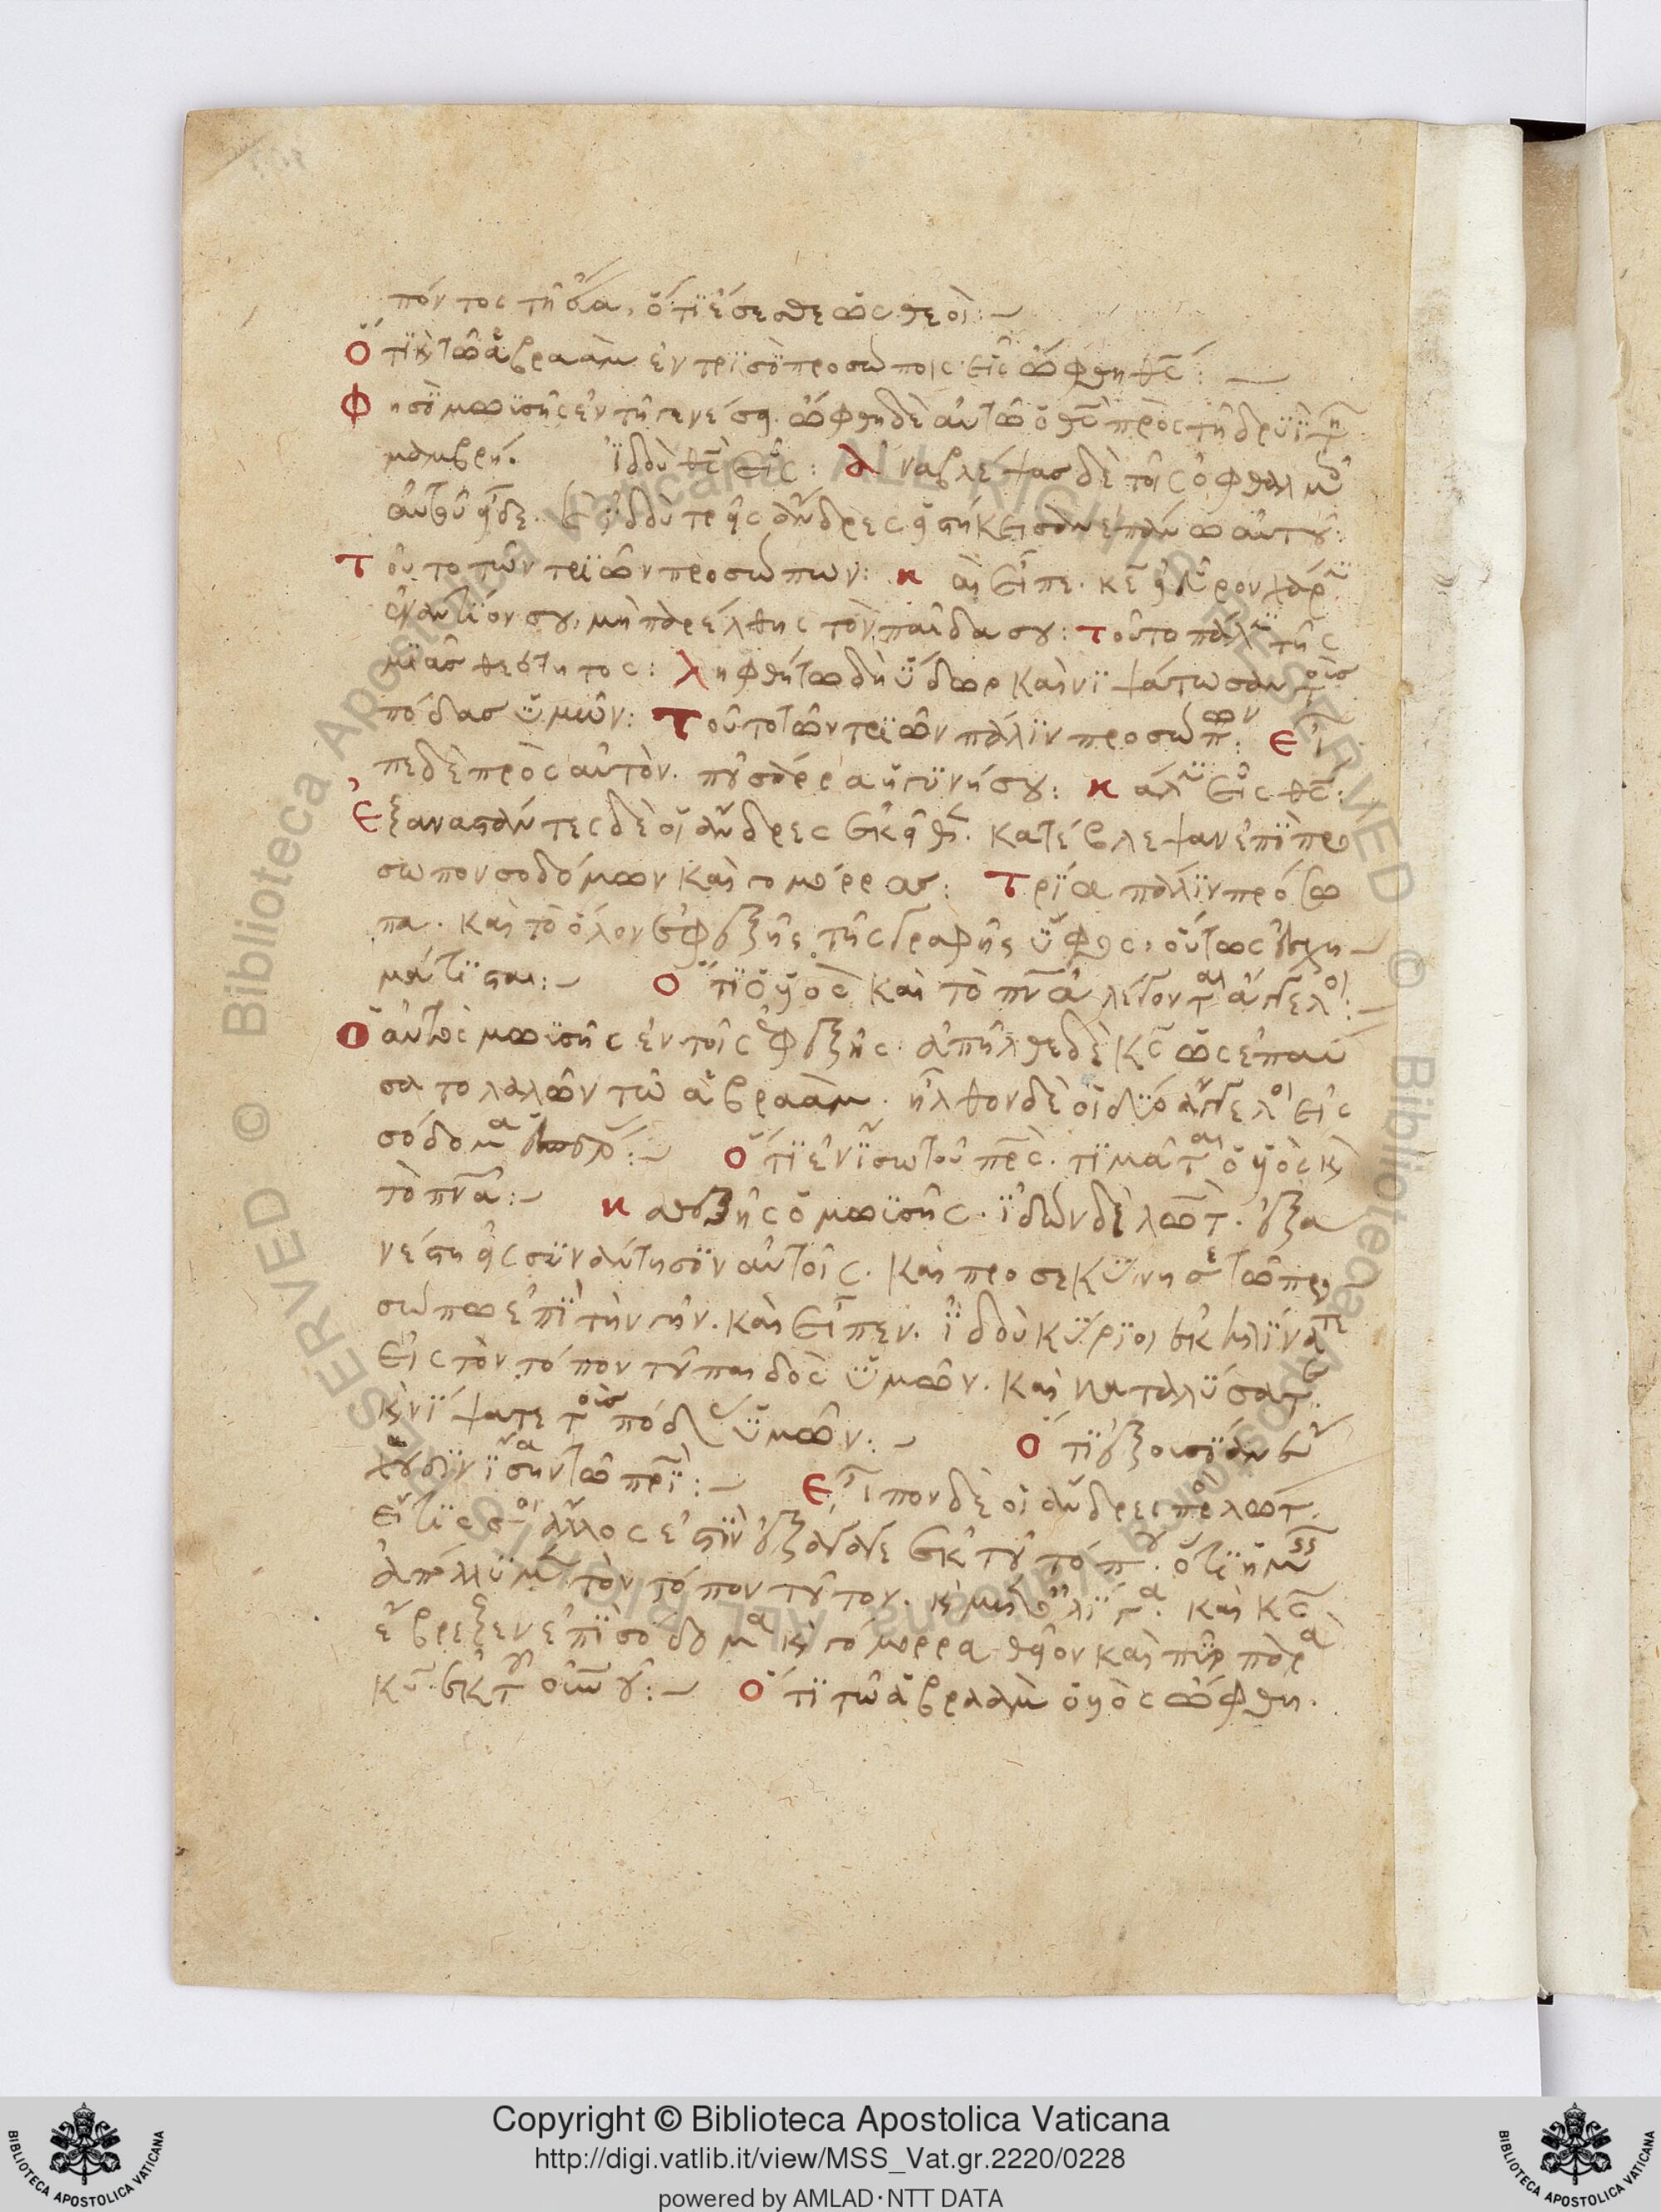 πόντος τῆ εὔα, ὅτι ἔσεσθε ὡς θεοὶ:-
Ὅτι κ τῶ ἀβραὰμ ἐν τρισὶ προσώποις εἷς ὤφθη θς:
Φησὶ μωϊσῆς ἐν τῆ γενέσει. ὤφθη δὲ αὐτῶ ὁ θς πρὸς τῆ δρυῒ τῆ
μαμβρή. ἰδοὺ θς εἷς: Ἀναβλέψας δὲ τοῖς ὀφθαλμοῖς
αὐτοῦ εἶδε. κ ἰδοὺ τρεῖς ἄνδρες εἱστήκεισαν ἐπάνω αὐτοῦ:
Τοῦτο τῶν τριῶν προσώπων: κ αὶ εἶπε. κε εἰ εὗρον χάριν
ἐναντίον σου, μὴ παρέλθης τὸν παῖδα σου: τοῦτο πάλιν τῆς
μιᾶς θεότητος: ληφθήτω δὴ ὕδωρ καὶ νιψάτωσαν τοὺς
πόδας ὑμῶν: Τοῦτο τῶν τριῶν πάλιν προσώπων: εἶ
πε δὲ πρὸς αὐτὸν. ποῦ σάρρα ἡ γυνή σου: κ πάλιν εἷς θς:
Ἐξαναστάντες δὲ οἱ ἄνδρες ἐκεῖθεν. κατέβλεψαν ἐπὶ πρό
σωπον σοδόμων καὶ γομόρρας: Τρία πάλιν πρόσω
πα. καὶ τὸ ὅλον ἐφεξῆς τῆς γραφῆς ὕφος, οὕτως ἐσχη
μάτισται:- Ὅτι ὁ υἱὸς καὶ τὸ πνα λέγονται ἄγγελοι:-
Ὁ αὐτὸς μωϊσῆς ἐν τοῖς ἐφεξῆς. ἀπῆλθε δὲ κς ὡς ἐπαύ
σατο λαλῶν τῶ ἀβραὰμ. ἦλθον δὲ οἱ δύο ἄγγελοι εἰς
σόδομα ἑσπέρας:- Ὅτι ἐν ἴσω τοῦ πρς. τιμᾶται ὁ υἱὸς κ
τὸ πνα:- κ αθεξῆς ὁ μωϊσῆς. ἰδὼν δὲ λὼτ. ἐξα
νέστη εἰς συνάντησιν αὐτοῖς. καὶ προσεκύνησε τῶ προ
σώπω ἐπὶ τὴν γῆν. καὶ εἶπεν. ἰδοὺ κύριοι ἐκκλίνατε
εἰς τὸν τόπον τοῦ παιδὸς ὑμῶν. καὶ καταλύσατε.
κ νίψατε τοὺς πόδας ὑμῶν:- Ὅτι ἐξουσίαν ἔ
χουσιν ἴσην τῶ πρι:- Εἶπον δὲ οἱ ἄνδρες πρὸς λωτ.
εἴ τίς σοι ἄλλος ἐστὶν ἐξάγαγε ἐκ τοῦ τόπου. ὅτι ἡμεῖς
ἀπόλλυμεν τὸν τόπον τοῦτον. κ μετ ὀλίγα. καὶ κς
ἔβρεξεν ἐπὶ σόδομα κ γόμορρα θεῖον καὶ πῦρ παρὰ
κυ ἐκ τοῦ ουνου:- Ὅτι τῶ ἀβραὰμ ὁ υἱὸς ὤφθη.
Copyright © Biblioteca Apostolica Vaticana
http://digi.vatlib.it/view/MSS_Vat.gr.2220/0228
powered by AMLAD·NTT DATA
BIBLIOTECA APOSTOLICA VATICANA
BIBLIOTECA APOSTOLICA VATICANA